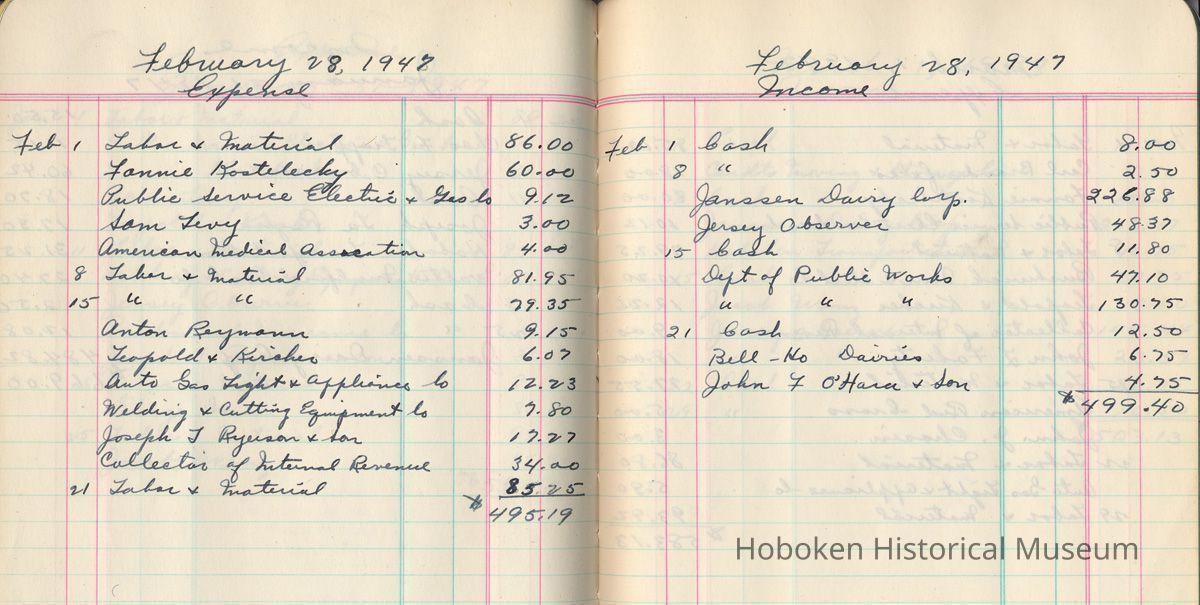 February 28, 1947
Expense
Feb 1 Labor & Material 86.00
Fannie Kostelecky 60.00
Public Service Electric & Gas Co 9.12
Sam Levy 3.00
American Medical Assocation 4.00
8 Labor & Material 81.95
15 " " 79.35
Anton Reymann 9.15
Leopold & Kircher 6.07
Auto Gas Light & Appliance Co 12.23
Welding & Cutting Equipment Co 7.80
Joseph T Ryerson & Son 17.27
Collector of Internal Revenue 34.00
21 Labor & Material 85.25
$495.19
February 28, 1947
Income
Feb 1 Cash 8.00
8 " 2.50
Janssen Dairy Corp. 226.88
Jersey Observer 48.37
15 Cash 11.80
Dept of Public Works 47.10
" " " 130.75
21 Cash 12.50
Bell-Ho Dairies 6.75
John F O'Hara & Son 4.75
$499.40
Hoboken Historical Museum